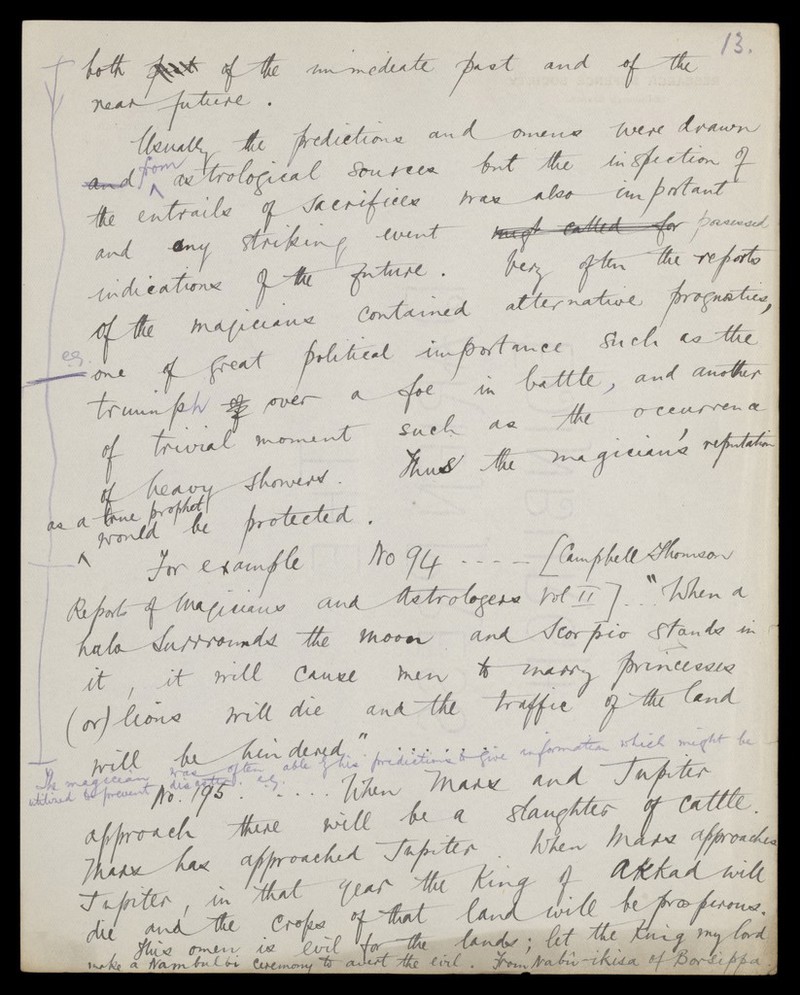 13.
both past of the immediate past and of the
near future.
Usually the predictions and omens were drawn
and from astrological sources but the inspection of
the entrails of sacrifices was also important
and any striking event might called for possessed
indications of the future. Very often the reports
of the magicians contained alternative prognostics,
e.g. one of great political importance such as the
triumph of over a foe in battle, and another
of trivial moment such as the occurrence
of heavy showers. Thus the magician's reputation
as a true prophet
would be protected.
For example No 94 ----- [Campbell Thomson
Reports of Magicians and Astrologers Vol II] .. "When a
halo surrrounds the moon and Scorpio stands in
it, it will cause men to marry princesses
(or) lions will die and the traffic of the land
will be hindered" ........
The magician was often able by his predictions to give information which might be
utilized to prevent disaster. e.g.
No. 195. ..... When Mars and Jupiter
approach there will be a slaughter of cattle.
Mars has approached Jupiter. When Mars approaches
Jupiter, in that year the King of Akkad will
die and the crops of that land will be prosperous.
This omen is evil for the lands; let the King my lord
make a Nambulbi ceremony to avert the evil. From Nabû-ikisa of Borsippa